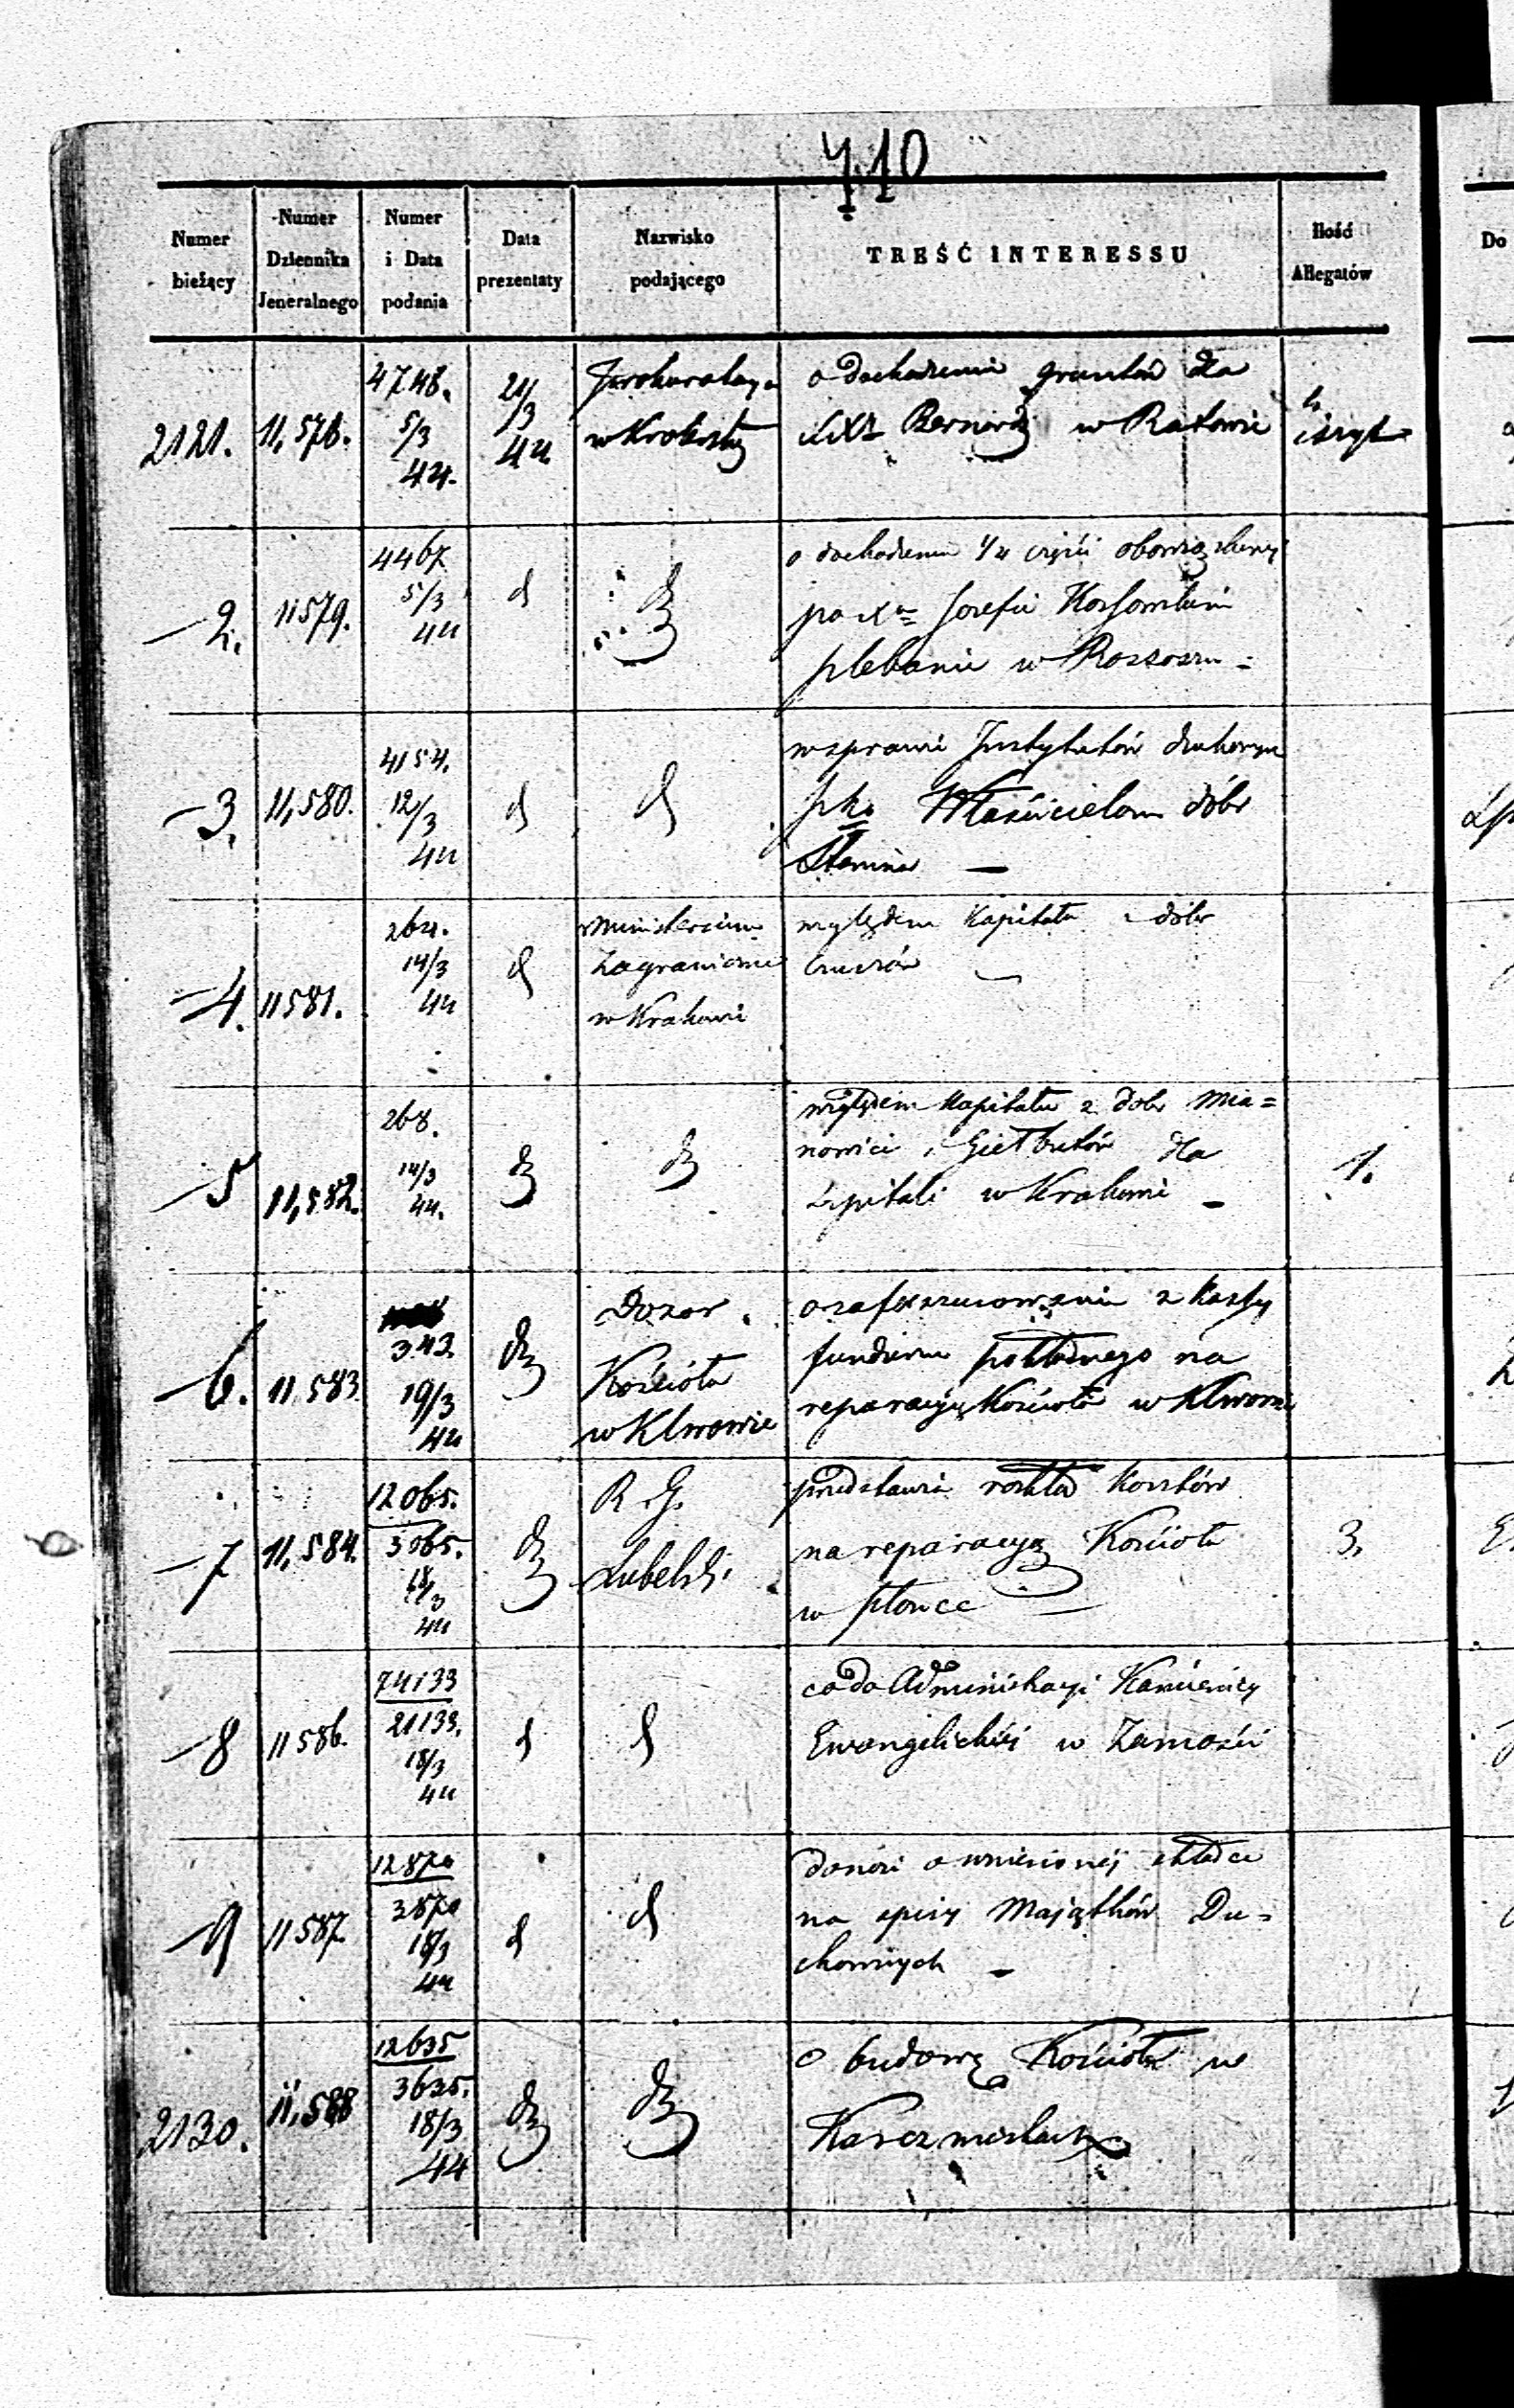 710
Numer bieżący
Numer Dziennika Jeneralnego
Numer i Data podania
Data prezentaty
Nazwisko podającego
TREŚĆ INTERESSU
Ilość Allegatów
Do
2121. 11,578. 4748. 5/3 44. 21/3 44
o dochodzenia gruntów dla
XXX Bernard w Ratowie
2. 11579. 4467. 5/3 44 d dz
o dochodzeniu 1/4 części
po Xu Jozefie
plebanie w Rossoszu
3. 11,580. 4154. 12/3 44 d d
w sprawie Instytutów duchownych
pko Właścicielom dóbr
4. 11581. 264. 14/3 44 d
Ministerium
Zagraniczne
w Krakowie
względem Kapitału z dóbr
5 11,582. 268. 14/3 44. dz dz
względem Kapitału z dobr Mia=
nowice, Giełbutów dla
szpitali w Krakowie
1.
6. 11,583 343. 19/3 44 dz
Dozor
Kościoła
w Klwowie
o zafixumowanie z kassy
funduszu pokładnego na
reparacyę Kościoła w Klwowie
7 11,584. 12065. 3065. 18/3 44 dz
R. G.
Lubelski
przedstawia rozkład kosztów
na reparacyę Kościoła
w Płonce
3.
8 11586. 74133 21133. 18/3 44 d d
co do Administracyi Kamienicy
Ewangelickiej w Zamościu
9 11587. 12870 3870 18/3 44 d d
donosi o wniesionej składce
na spisy Majątków Du=
chownych
2130. 11,588 12635 3635. 18/3 44 dz dz
o budowę Kościoła w
Karczmiskach